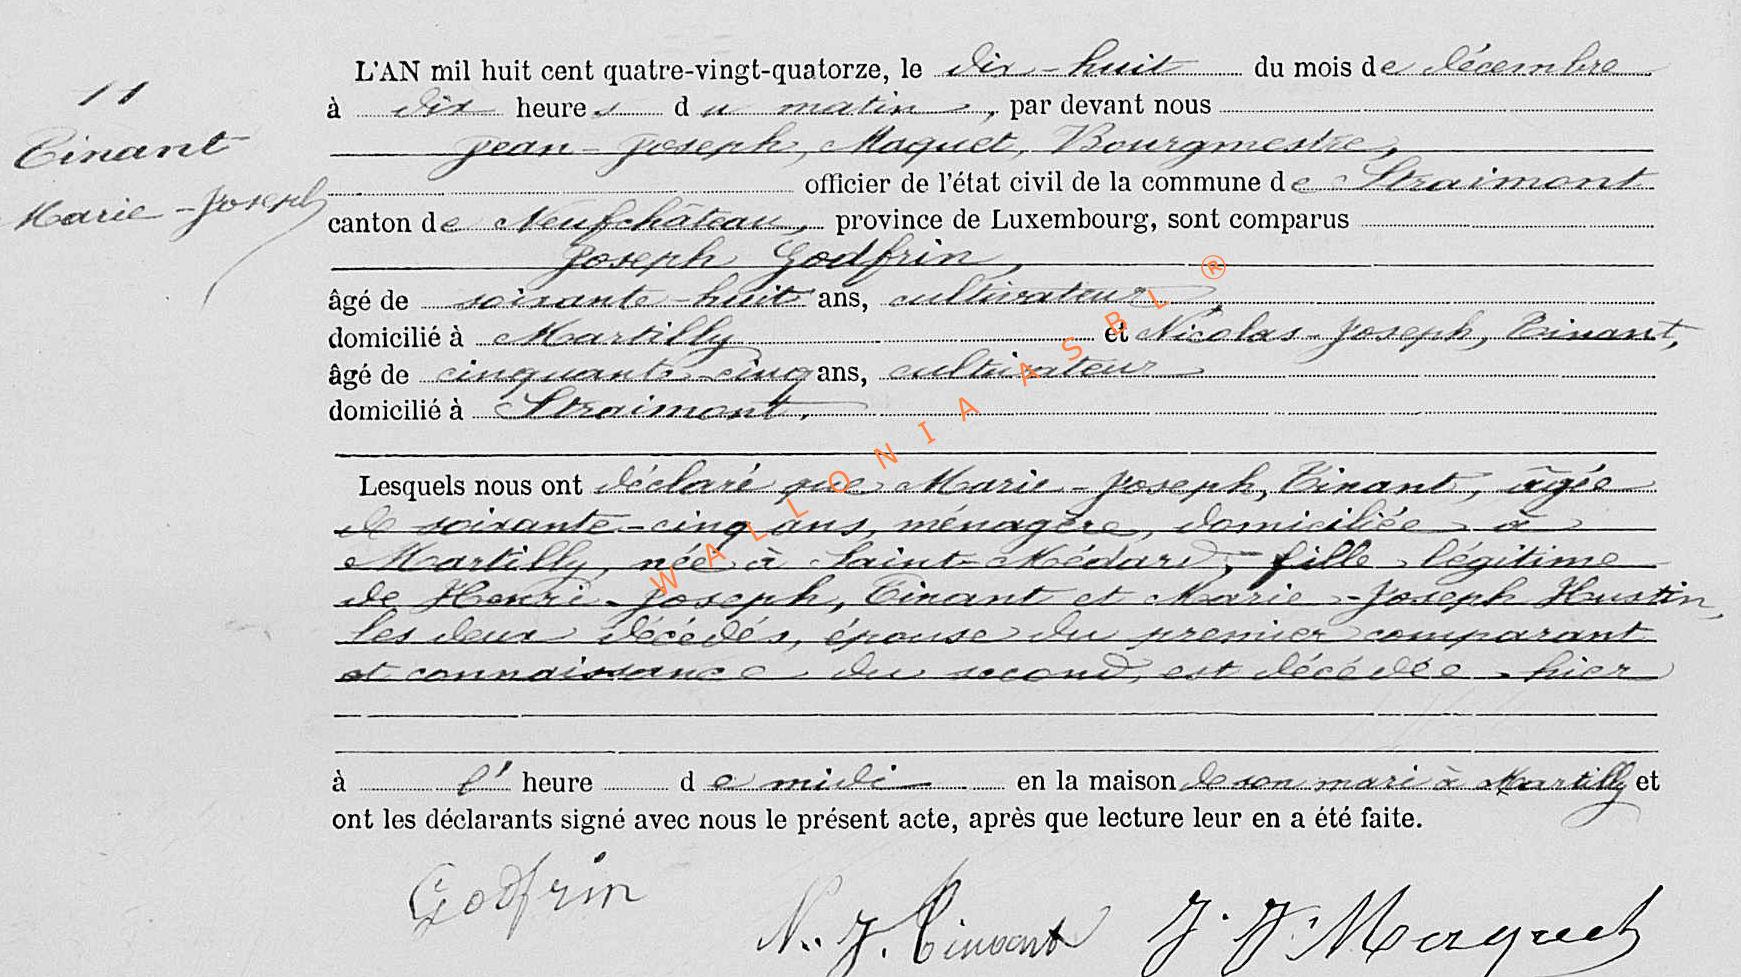 11
Tinant
Marie-Joseph
L'AN mil huit cent quatre-vingt-quatorze, le dix-huit du mois de décembre
à dix heures du matin, par devant nous
Jean-Joseph, Maquet, Bourgmestre,
officier de l'état civil de la commune de Straimont
canton de Neufchâteau, province de Luxembourg, sont comparus
Joseph Godfrin,
âgé de soixante-huit ans, cultivateur,
domicilié à Martilly et Nicolas-Joseph, Tinant,
âgé de cinquante-cinq ans, cultivateur
domicilié à Straimont.
Lesquels nous ont déclaré que Marie-Joseph, Tinant, âgée
de soixante-cinq ans, ménagère, domiciliée à
Martilly, née à Saint-Médard, fille légitime
de Henri-Joseph, Tinant et Marie-Joseph Hustin,
les deux décédés, épouse du premier comparant
et connaissance du second, est décédée hier
à l' heure de midi en la maison de son mari à Martilly et
ont les déclarants signé avec nous le présent acte, après que lecture leur en a été faite.
Godfrin
N. J. Tinant
J. J. Maquet
WALLONIA ASBL ®